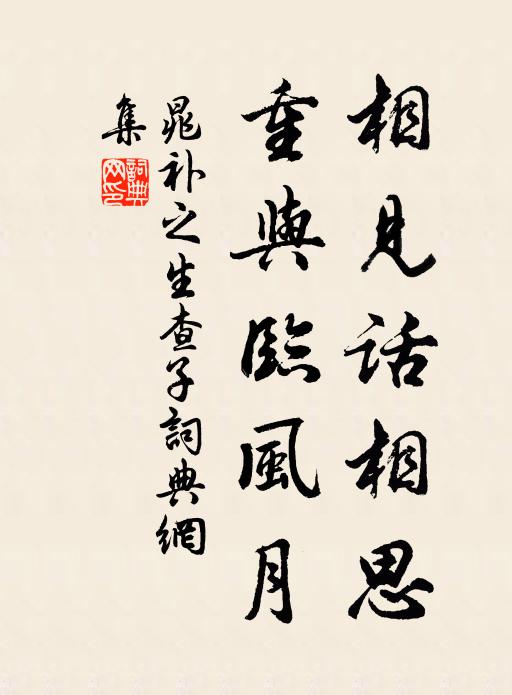 相見話相思
重與臨風月
晁补之生查子詞典網
集
詞典
网印